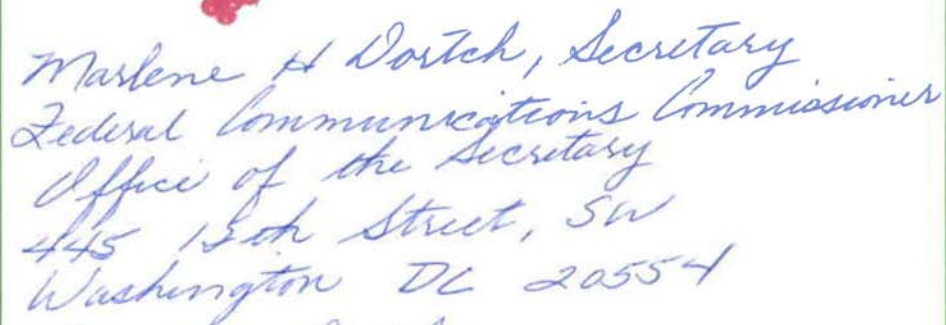 Marlene H Dortch, Secretary
Federal Communications Commissioner
Office of the Secretary
445 12th Street, SW
Washington DC 20554